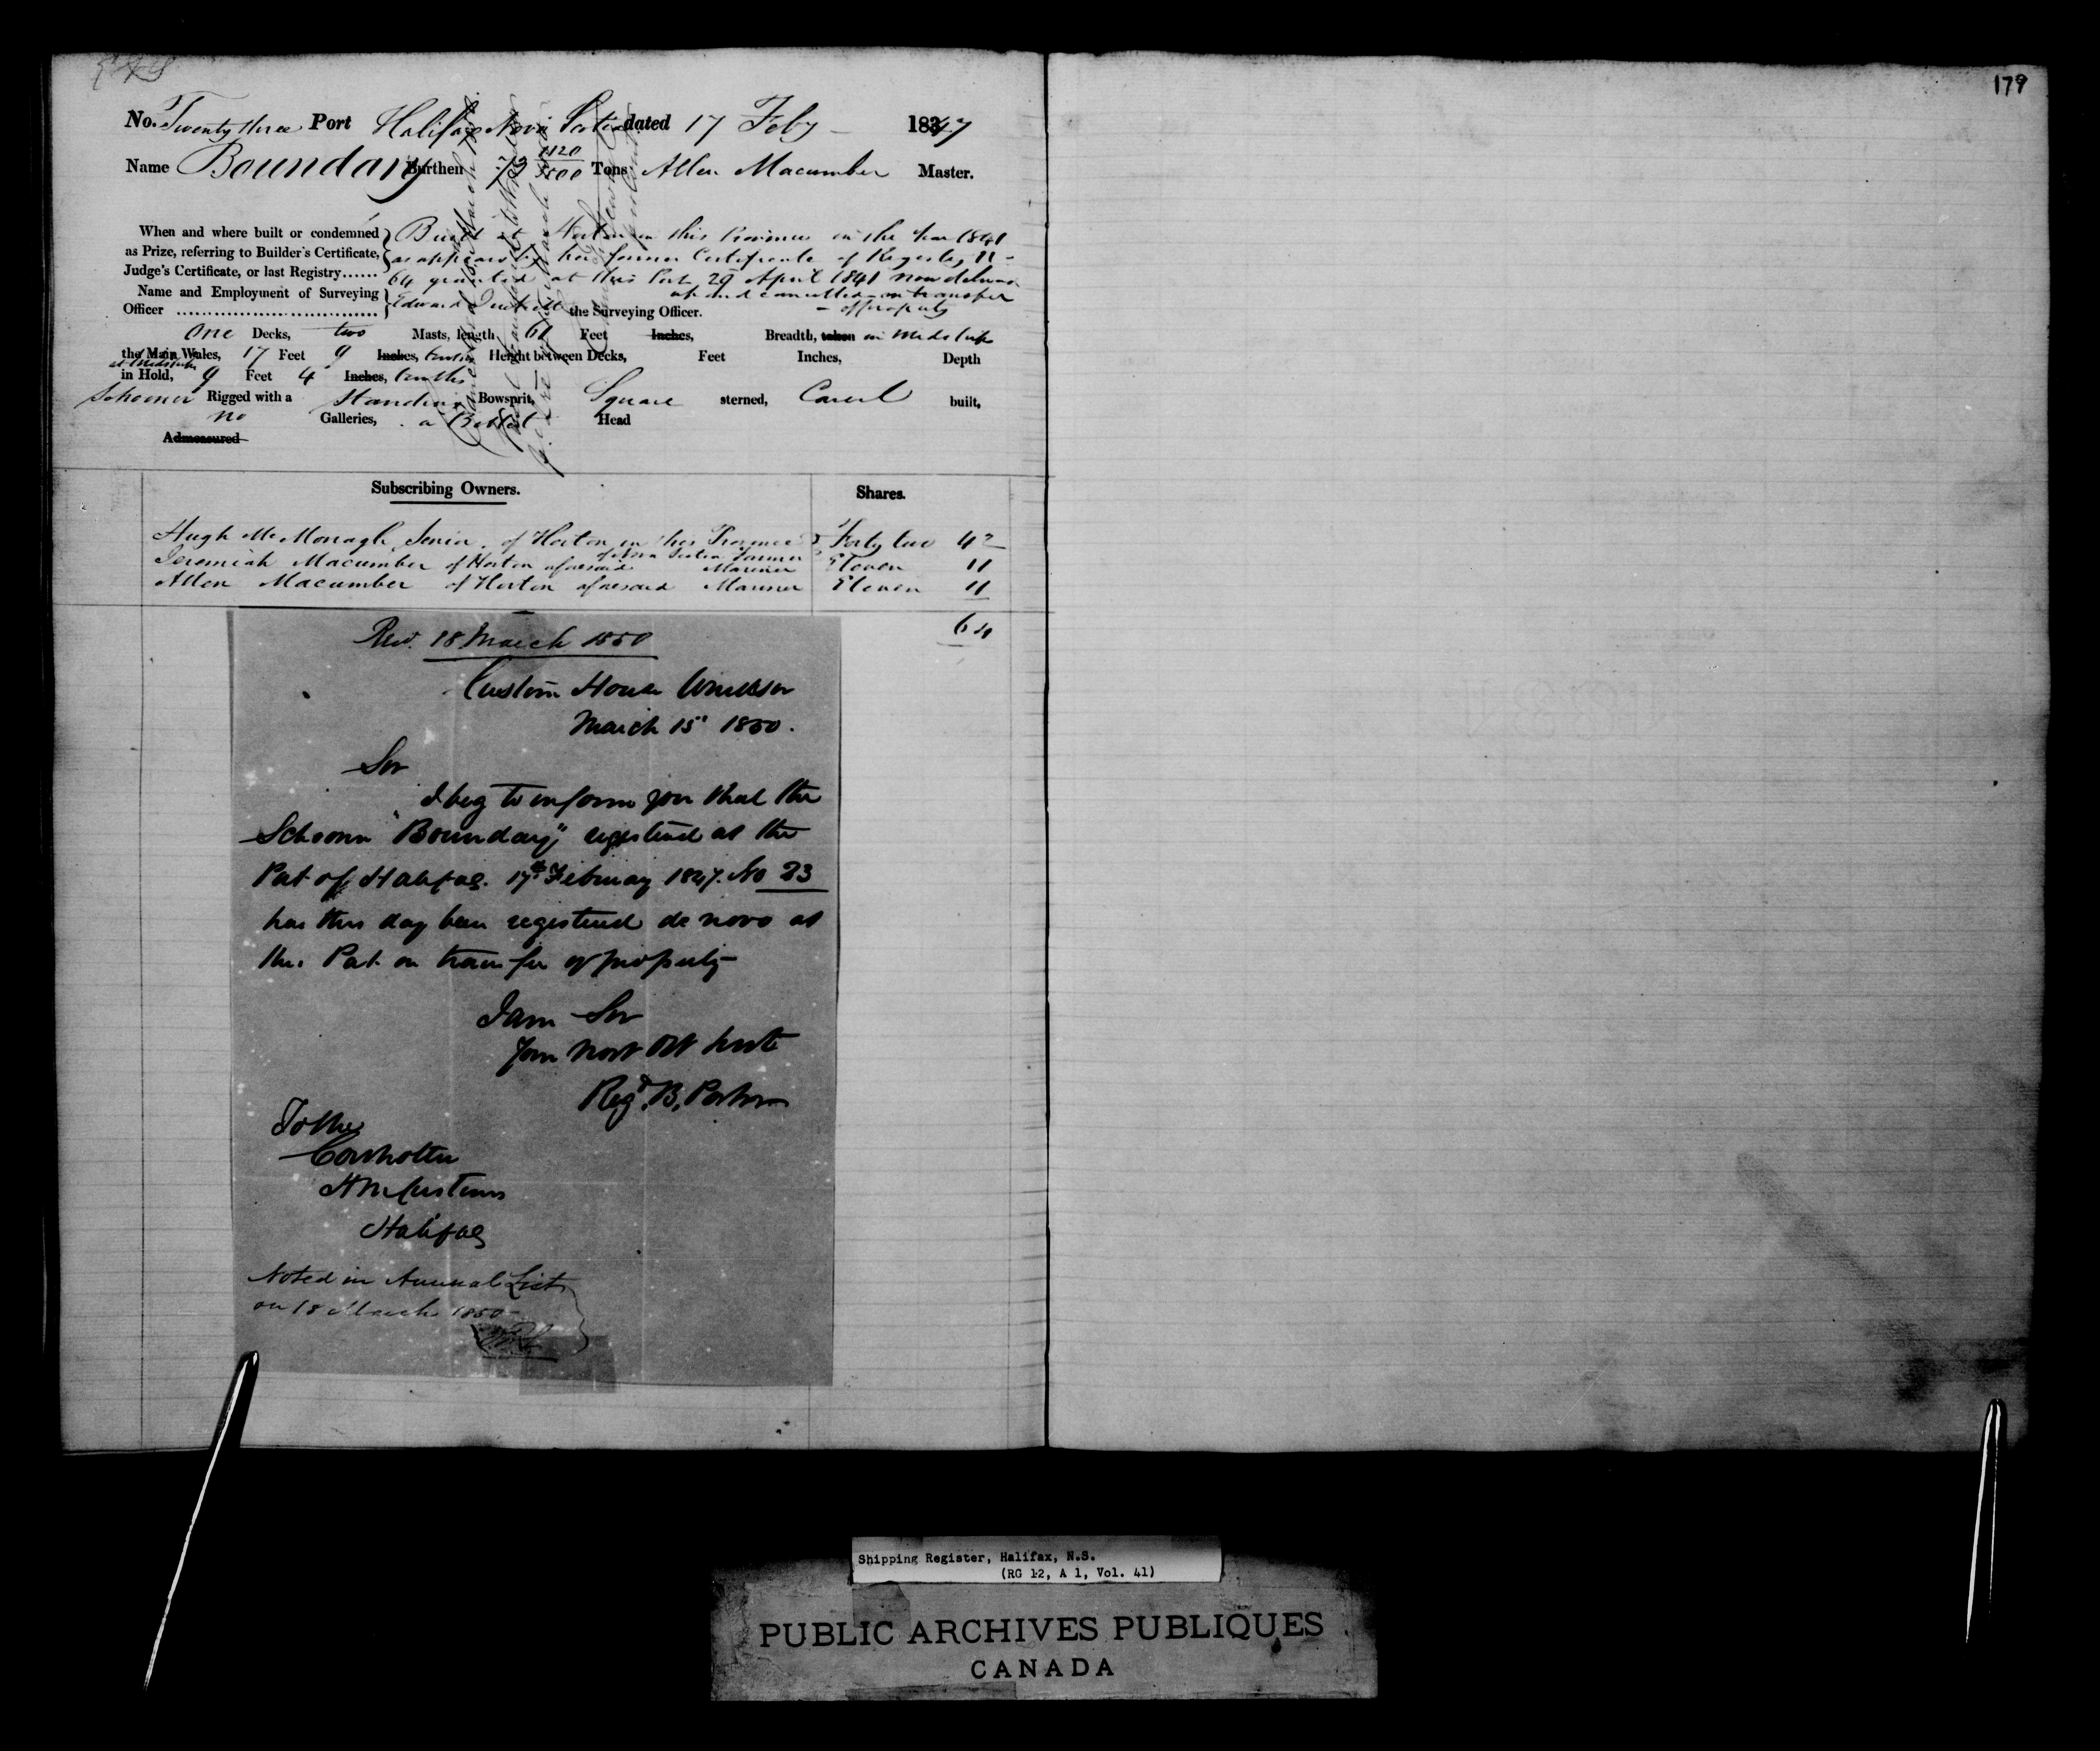 179
No. Twenty three Port Halifax Nova Scotia dated 17 Feby 1847
Name Boundary Burthen 72 1120/3500 Tons Allen Macumber Master.
When and where built or condemned Built at Horton in this Province in the Year 1841
as Prize, referring to Builder's Certificate, as appears by her former Certificate of Registry N
Judge's Certificate, or last Registry...... 64 granted at this Port 29 April 1841 now delivered
Name and Employment of Surveying up and cancelled on transfer
Officer Edward the Surveying Officer. of property
One Decks, two Masts, length 61 Feet Inches, Breadth, taken in Midships
the Main Wales, 17 Feet 9 Inches, tenths Height between Decks, Feet Inches, Depth
at Midships
in Hold, 9 Feet 4 Inches, tenths
Schooner Rigged with a Standing Bowsprit, Square sterned, Carvel built,
no Galleries, a Billet Head
Admeasured
Subscribing Owners. Shares.
Hugh McMonagle Senior of Horton in this Province Forty two 42
of Nova Scotia Farmer
Jeremiah Macumber of Horton aforesaid Mariner Eleven 11
Allen Macumber of Horton aforesaid Mariner Eleven 11
64
Recd. 18 March 1850
Custom House Windsor
March 15 1850.
Sir
I beg to inform you that the
Schooner "Boundary" registered at the
Port of Halifax. 17th February 1847. No 23
has this day been registered de novo at
this Port on transfer of property
I am Sir
Your Most Obt Servt
Regd. B. Porter
To the
Controller
H M Customs
Halifax
Noted in Annual List
on 18 March 1850
Shipping Register, Halifax, N.S.
(RG 12, A 1, Vol. 41)
PUBLIC ARCHIVES PUBLIQUES
CANADA